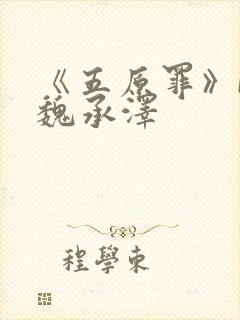 《五原罪》
魏承澤
程學東